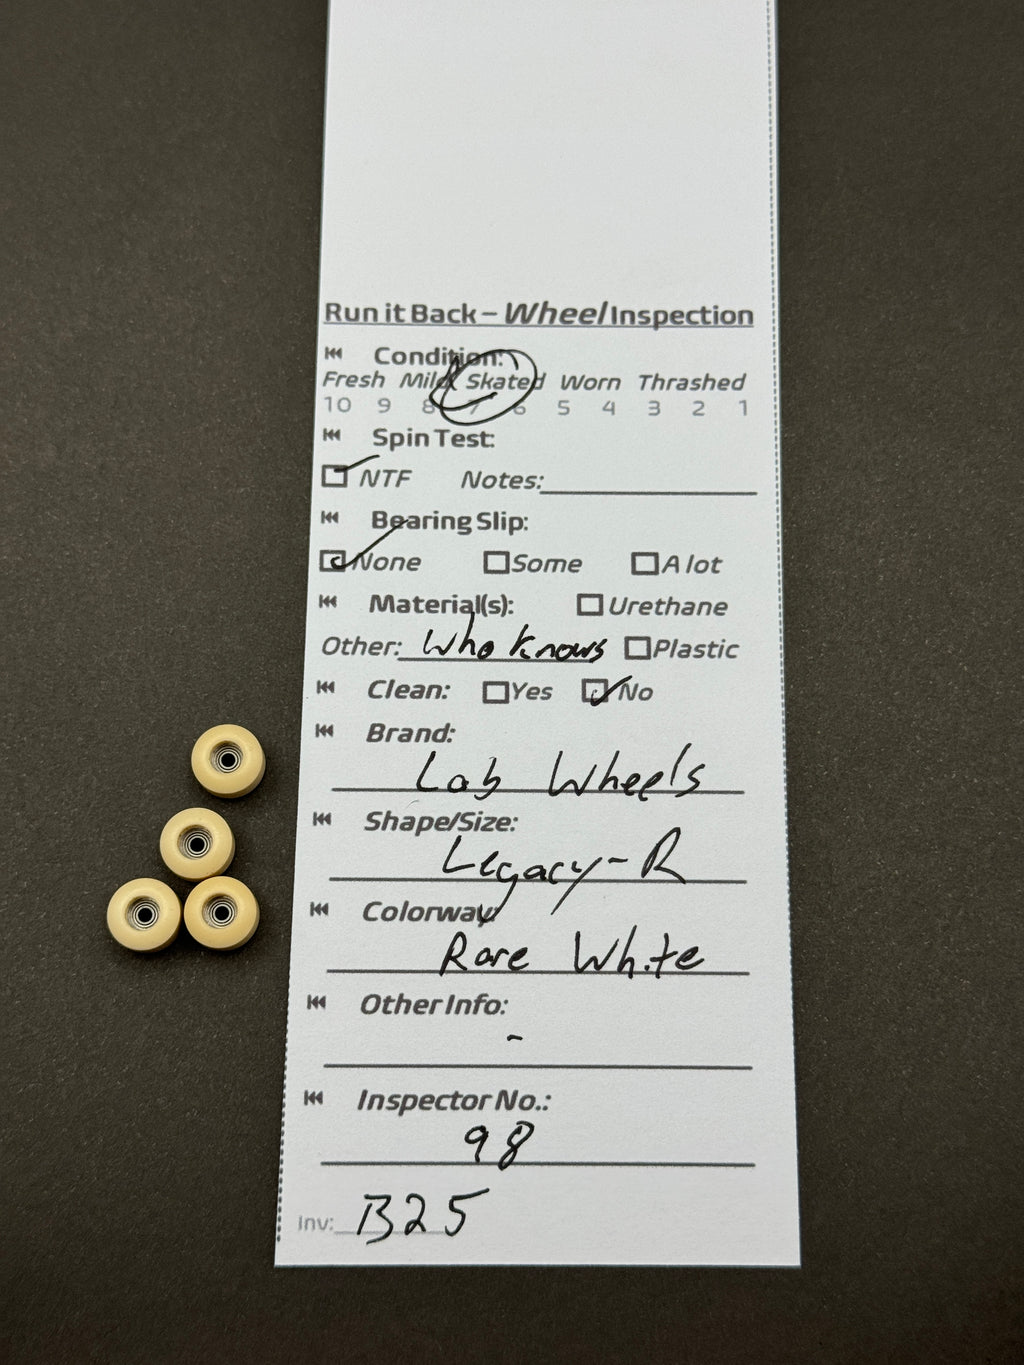 Run it Back – Wheel Inspection
Condition:
Fresh Mild Skated Worn Thrashed
10 9 8 7 6 5 4 3 2 1
Spin Test:
NTF Notes:
Bearing Slip:
None Some A lot
Material(s): Urethane
Other: Who Knows Plastic
Clean: Yes No
Brand:
Lab Wheels
Shape/Size:
Legacy-R
Colorway:
Rare White
Other Info:
-
Inspector No.:
98
Inv: B25